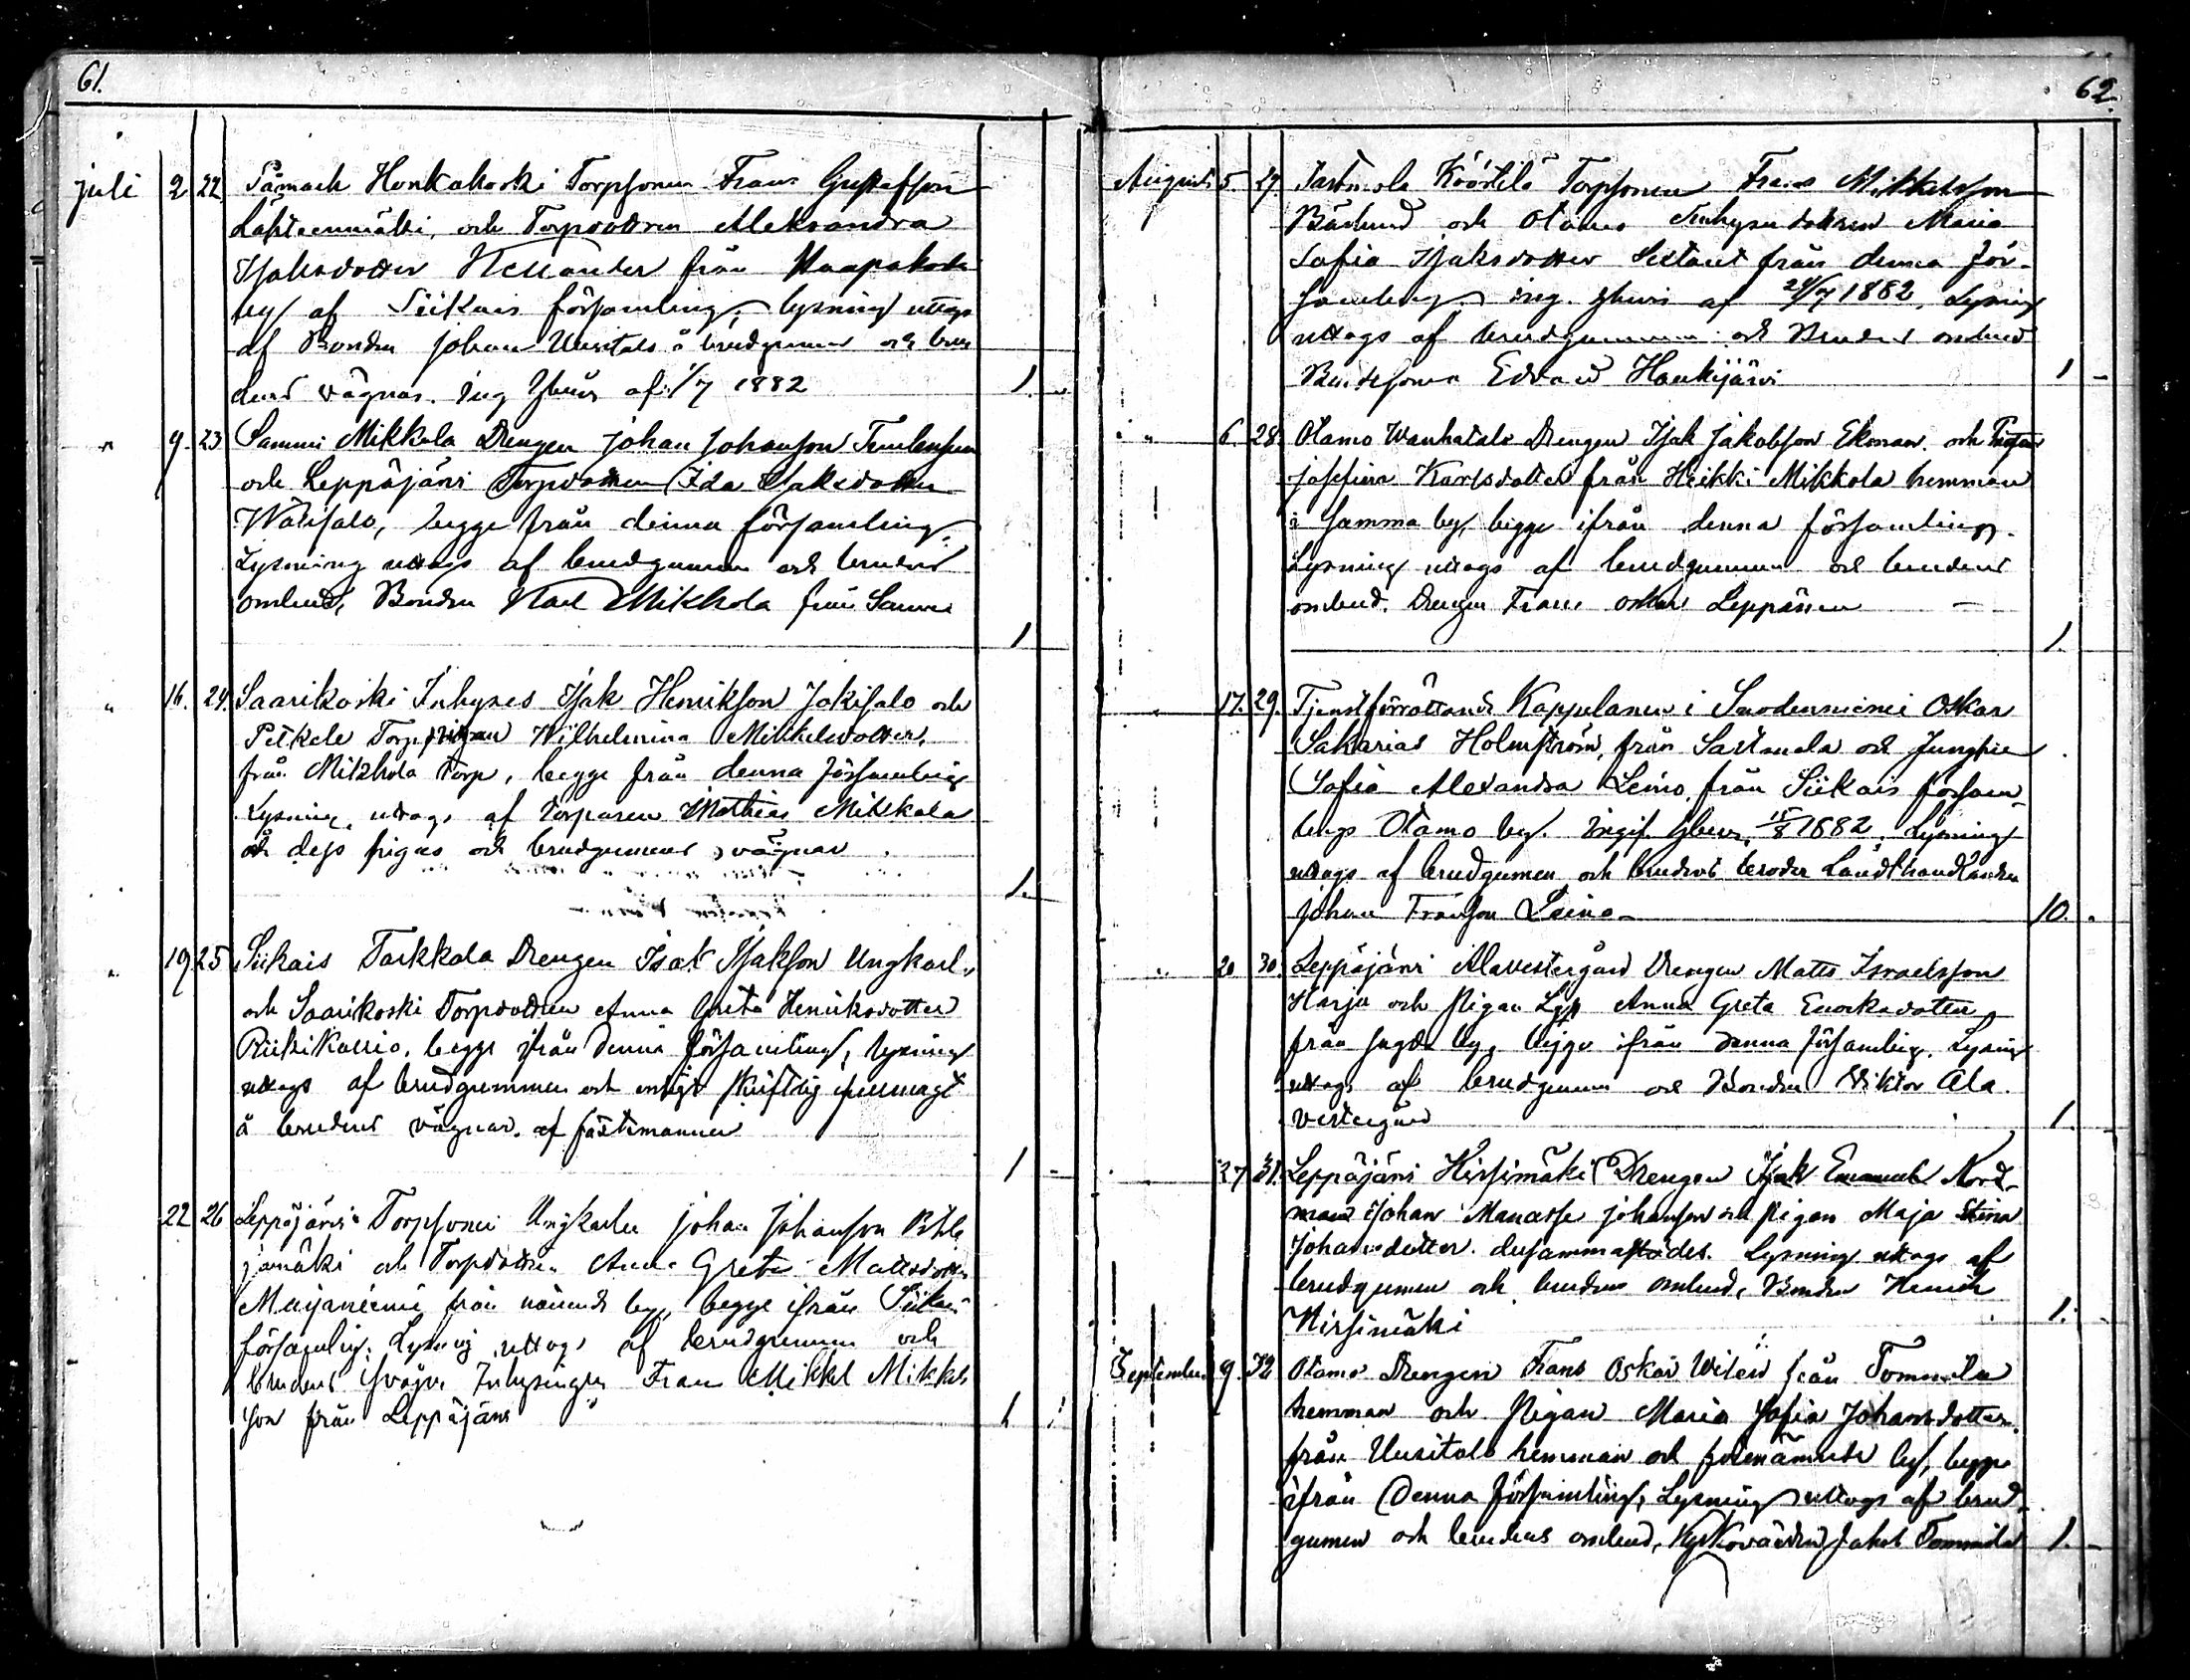 61.
juli 2 22 Sämack Honkakoski Torpsonen Frans Gustafsson
Lähteenmäki, och Torpdottren Aleksandra
Isaksdotter Hellander från Haapakoski
by af Siikais församling, lysning uttogs
af Bonden Johan Uusitalo å brudgummens och bru
dens vägnar. ing Gbevis af 1/7 1882 1. -
" 9. 23 Sammi Mikkola Drengen Johan Johansson
och Leppäjärvi Torpdottren Ida Isaksdotter
Wälisalo, begge från denna församling.
Lysning uttogs af brudgummen och brudens
ombud, Bonden Karl Mikkola från Sammi
1
" 16. 24. Saarikoski Inhyses Isak Henriksson Jokisalo och
Petkele Torppigan Wilhelmina Mikkelsdotter,
från Mikkola torp, begge från denna församling
Lysning uttogs af torparen Mathias Mikkola
å dess pigas och brudgummens vägnar
1.
" 19 25 Siikais Tarkkala Drengen Isak Isaksson Ungkarl
och Saarikoski Torpdottren Anna Greta Henriksdotter
begge ifrån denna församling, lysning
uttogs af brudgummen och enligt skriftlig fullmagt
å brudens vägnar. af fästemannen
1 -
22 26 Leppäjärvi Torpsonen Ungkarlen Johan Johansson
jamäki och Torpdottren Anna Greta Mattsdotter
Marjaniemi från nämnde by, begge ifrån Siikais
församling. Lysning uttogs af brudgummen och
brudens svåger Inhysingen Frans Mikkel Mikkels
son från Leppäjärvi 1
62.
Augusti 5. 27. Torpsonen Frans Mikkelsson
Bärlund och Otamo Inhysesdottren Maria
Sofia Isaksdotter från denna för-
samling ing. Gbevis af 29/7 1882, Lysning
uttogs af brudgummen och Brudens ombud
Bondesonen Edvard Haukijärvi 1 -
" 6. 28. Otamo Wanhatalo Drengen Isak Jakobsson Ekman och Pigan
Josefina Karlsdotter från Heikki Mikkola hemman
i samma by, begge ifrån denna församling.
Lysning uttogs af brudgummen och brudens
ombud. Drengen Frans Oskar Leppänen -
1.
" 17. 29. Tjenstförrättande Kappelanen i Suodenniemi Oskar
Sakarias Holmström, från Sastmola och Jungfrun
Sofia Alexandra Leino, från Siikais försam-
lings Otamo by. Ingif. Gbevis 15/8 1882. Lysning
uttogs af brudgumen och brudens broder Landthandlanden
Johan Fransson Leino - 10.
" 20 30. Leppäjärvi Alavestergård Drengen Matts Israelsson
Harju och pigan Anna Greta Enoksdotter
från sagde by, begge ifrån denna församling. Lysning
uttogs af brudgumen och Bonden Viktor Ala
vestergård 1.
" 27 31. Leppäjärvi Hirsimäki Drengen Isak Emanuel Nord-
man Johan Manasse Johansson och Pigan Maja Stina
Johansdotter. dersammastädes. Lysning uttogs af
brudgumen och brudens ombud, Bonden Henrik
Hirsimäki 1.
September 9. 32 Otamo Drengen Frans Oskar Wilén från Tommila
hemman och Pigan Maria Sofia Johansdotter
från Uusitalo hemman och förenämnde by, begge
ifrån denna församling, Lysning uttogs af brud-
gumen och brudens ombud, Kyrkovärden Jakob Tommila 1. -